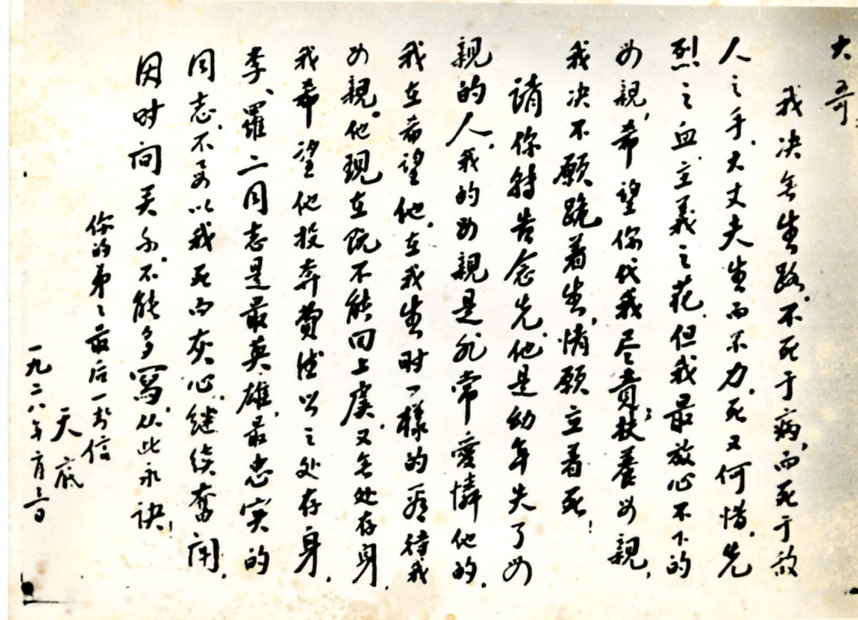 大哥：
我决无生路，不死于病，而死于敌
人之手，大丈夫生而不力，死又何惜，先
烈之血，主义之花，但我最放心不下的
母亲，希望你代我尽责，扶养母親，
我决不願跪着生，情願立着死！
請你转告念先，他是幼年失了母
親的人，我的母親是非常愛憐他的，
我在希望他，在我生时一樣的看待我
母親。他現在既不能回上虞，又无处存身，
我希望他投奔賀德以之处存身，
李、羅二同志是最英雄、最忠实的
同志，不要以我死而灰心，継续奮闘，
因时间关系，不能多寫，从此永诀！
你的弟之最后一封信
天底
一九二八年